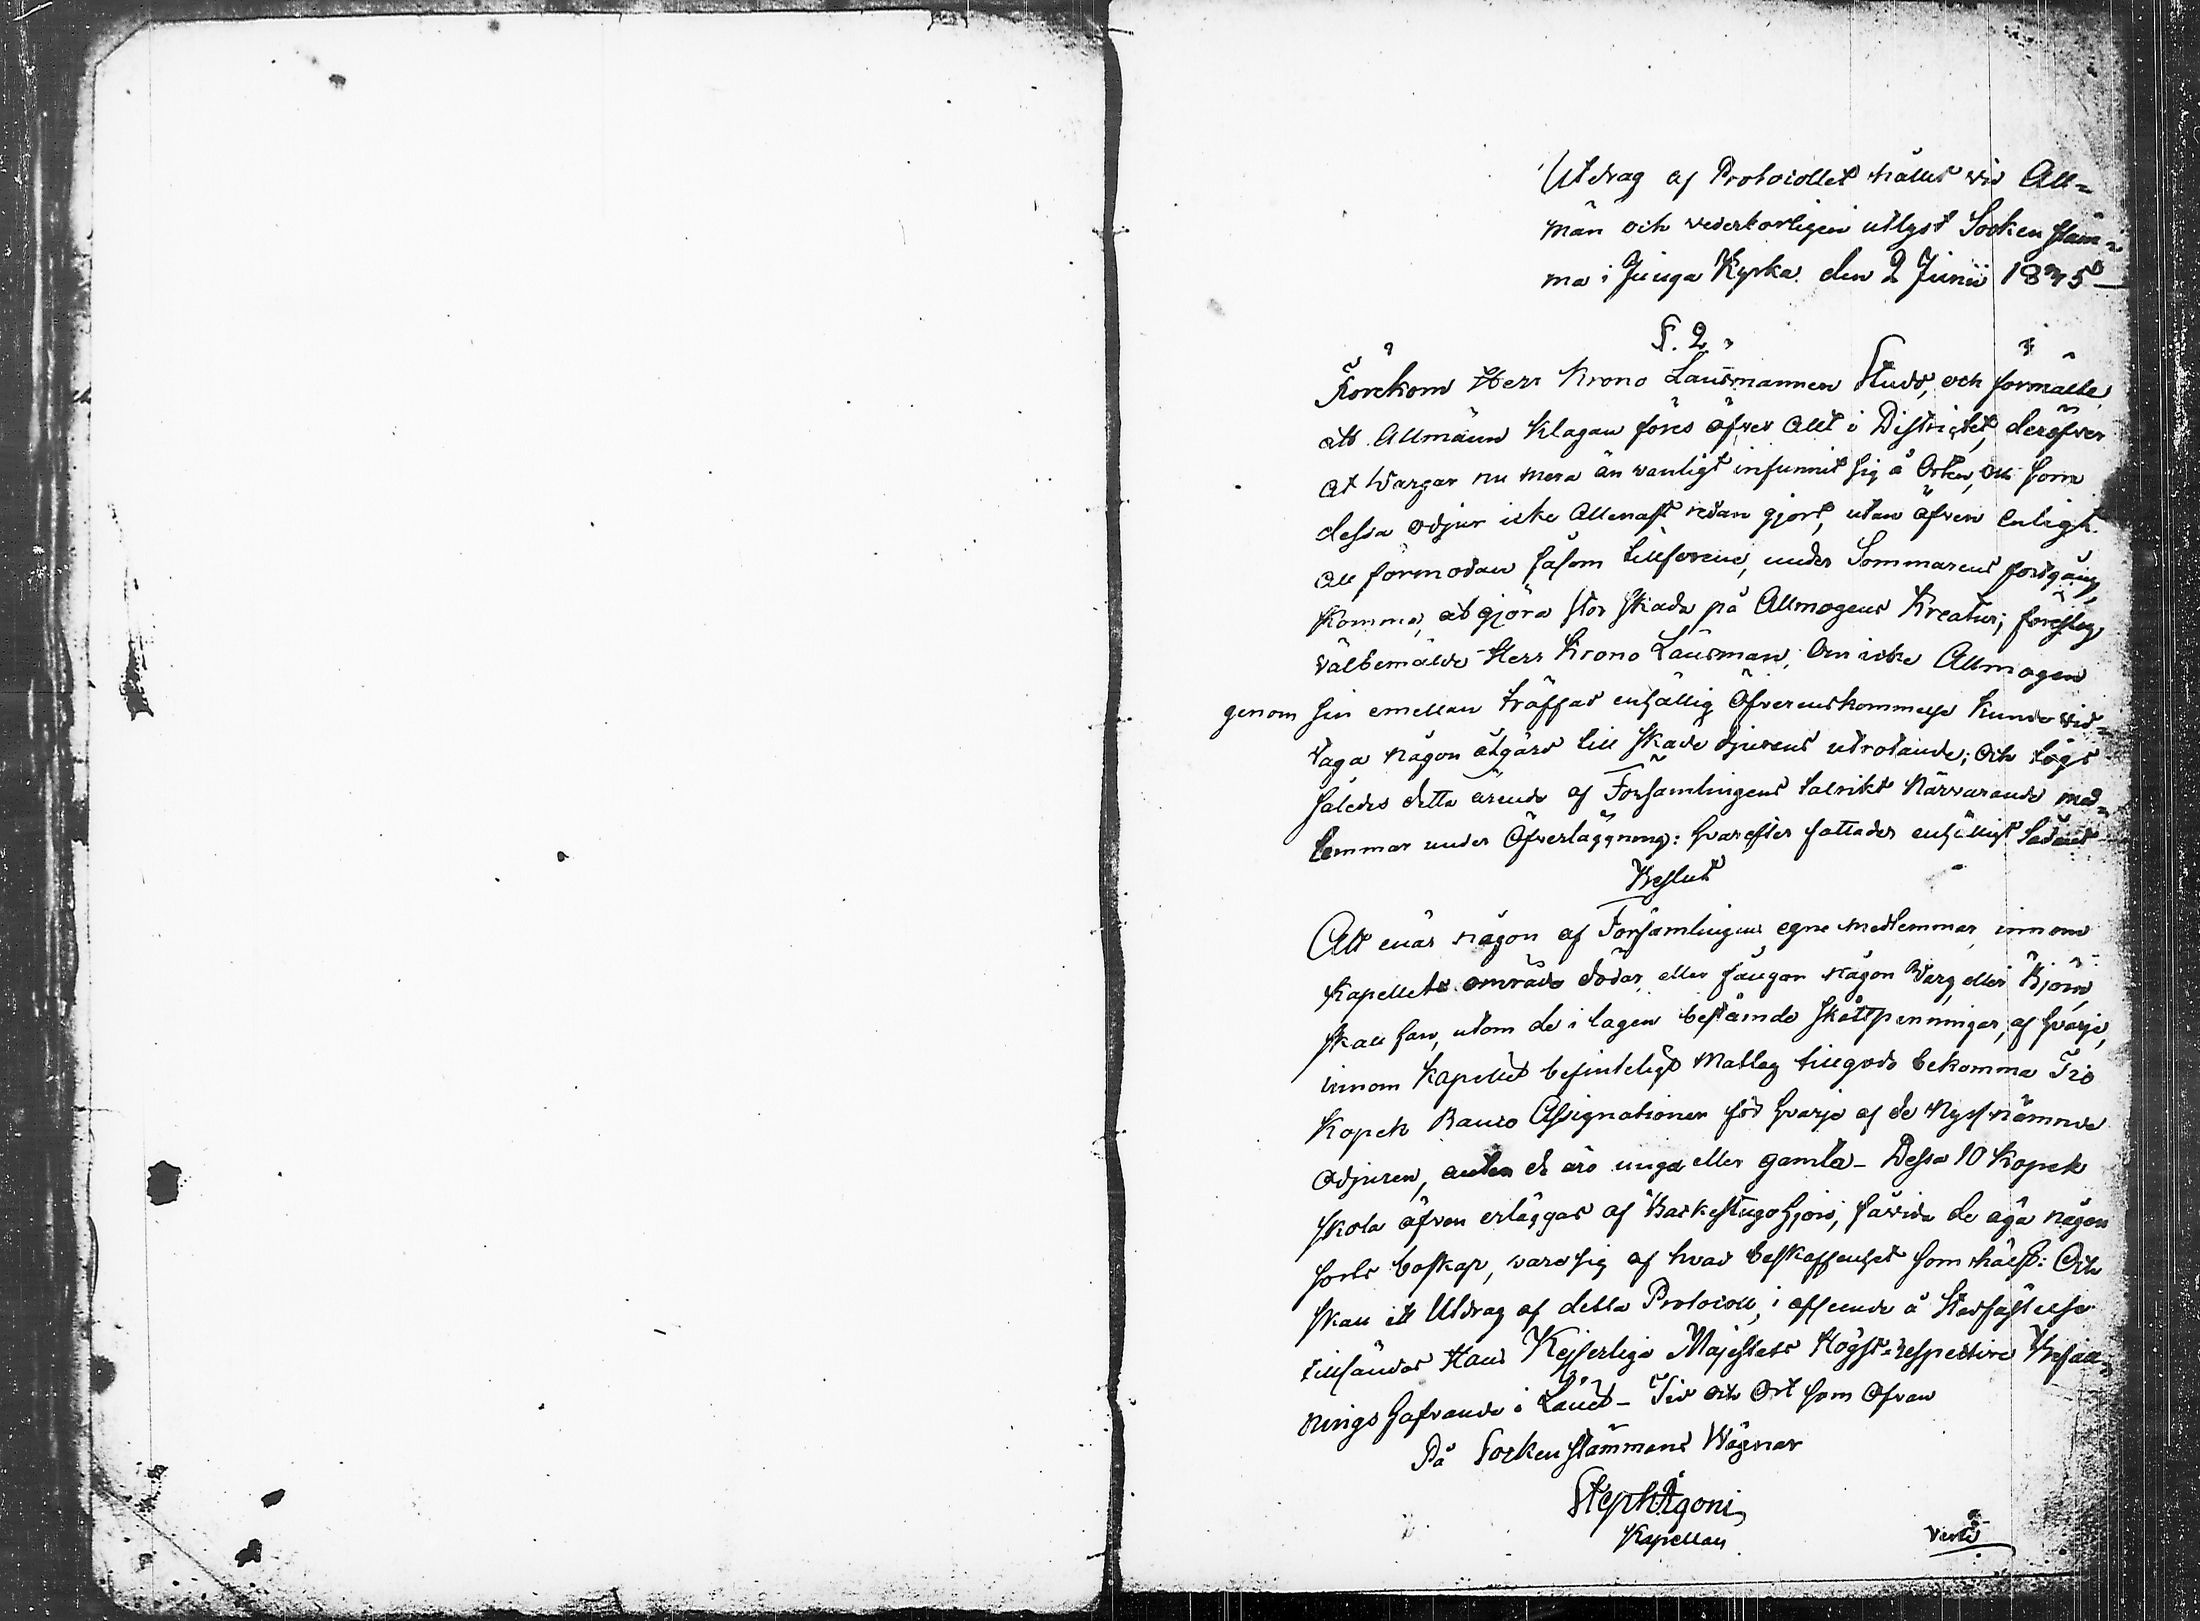 Utdrag af Protocollet hållit vid All=
män och vederborligen utlyst Socken stäm=
ma i Kyrka den 2 Junii
§. 2.
Förekom Herr Krono Länsmannen och förmälte
att Allmänn klagan föres öfver allt i Districtet, deröfver
at Wargar nu mera än vanligt infunnit sig å Orten, och som
dessa odjur icke Allenast redan gjort, utan äfven enligt
all förmodan såsom tillforene, under Sommarens fortgång,
komma, at gjöra stor skada på Allmogens Kreatur; föreslog
välbemälde Herr Krono Länsman, Om icke Allmogen
genom sin emellan träffad enhällig Öfverenskommelse kunde vid=
taga någon åtgärd till skade djurens utrotande; Och togs
således detta ärende af Församlingens talrikt Närvarande med=
lemmar under Öfverläggning: hvarefter fattades enhälligt Sådant
Beslut
Att enär någon af Församlingens egne medlemmar innom
Kapellets område dödar eller fångar någon Warg eller Björn,
skall han, utom de i lagen bestämde skottpenningar, af hvarje,
innom Kapellet befinteligt Matlag tillgodo bekomma Tio
Kopek Banco Assignationer för hvarje af de Nyss nämnde
Odjuren, anten de äro unga eller gamla – Dessa 10 Kopek
skola äfven erläggas af Backestugo hjon, såvida de äga någon
sorts boskap, vare sig af hvad beskaffenhet som hälst: Och
skall ett Utdrag af detta Protocoll, i afseende å Stadfästelse
tillsändas Hans Kejserliga Majestets Högst respective Befall=
nings hafvande i Länet – Tid och Ort som Ofvan
På Sockenstämmans Wägnar
Kapellan
verte